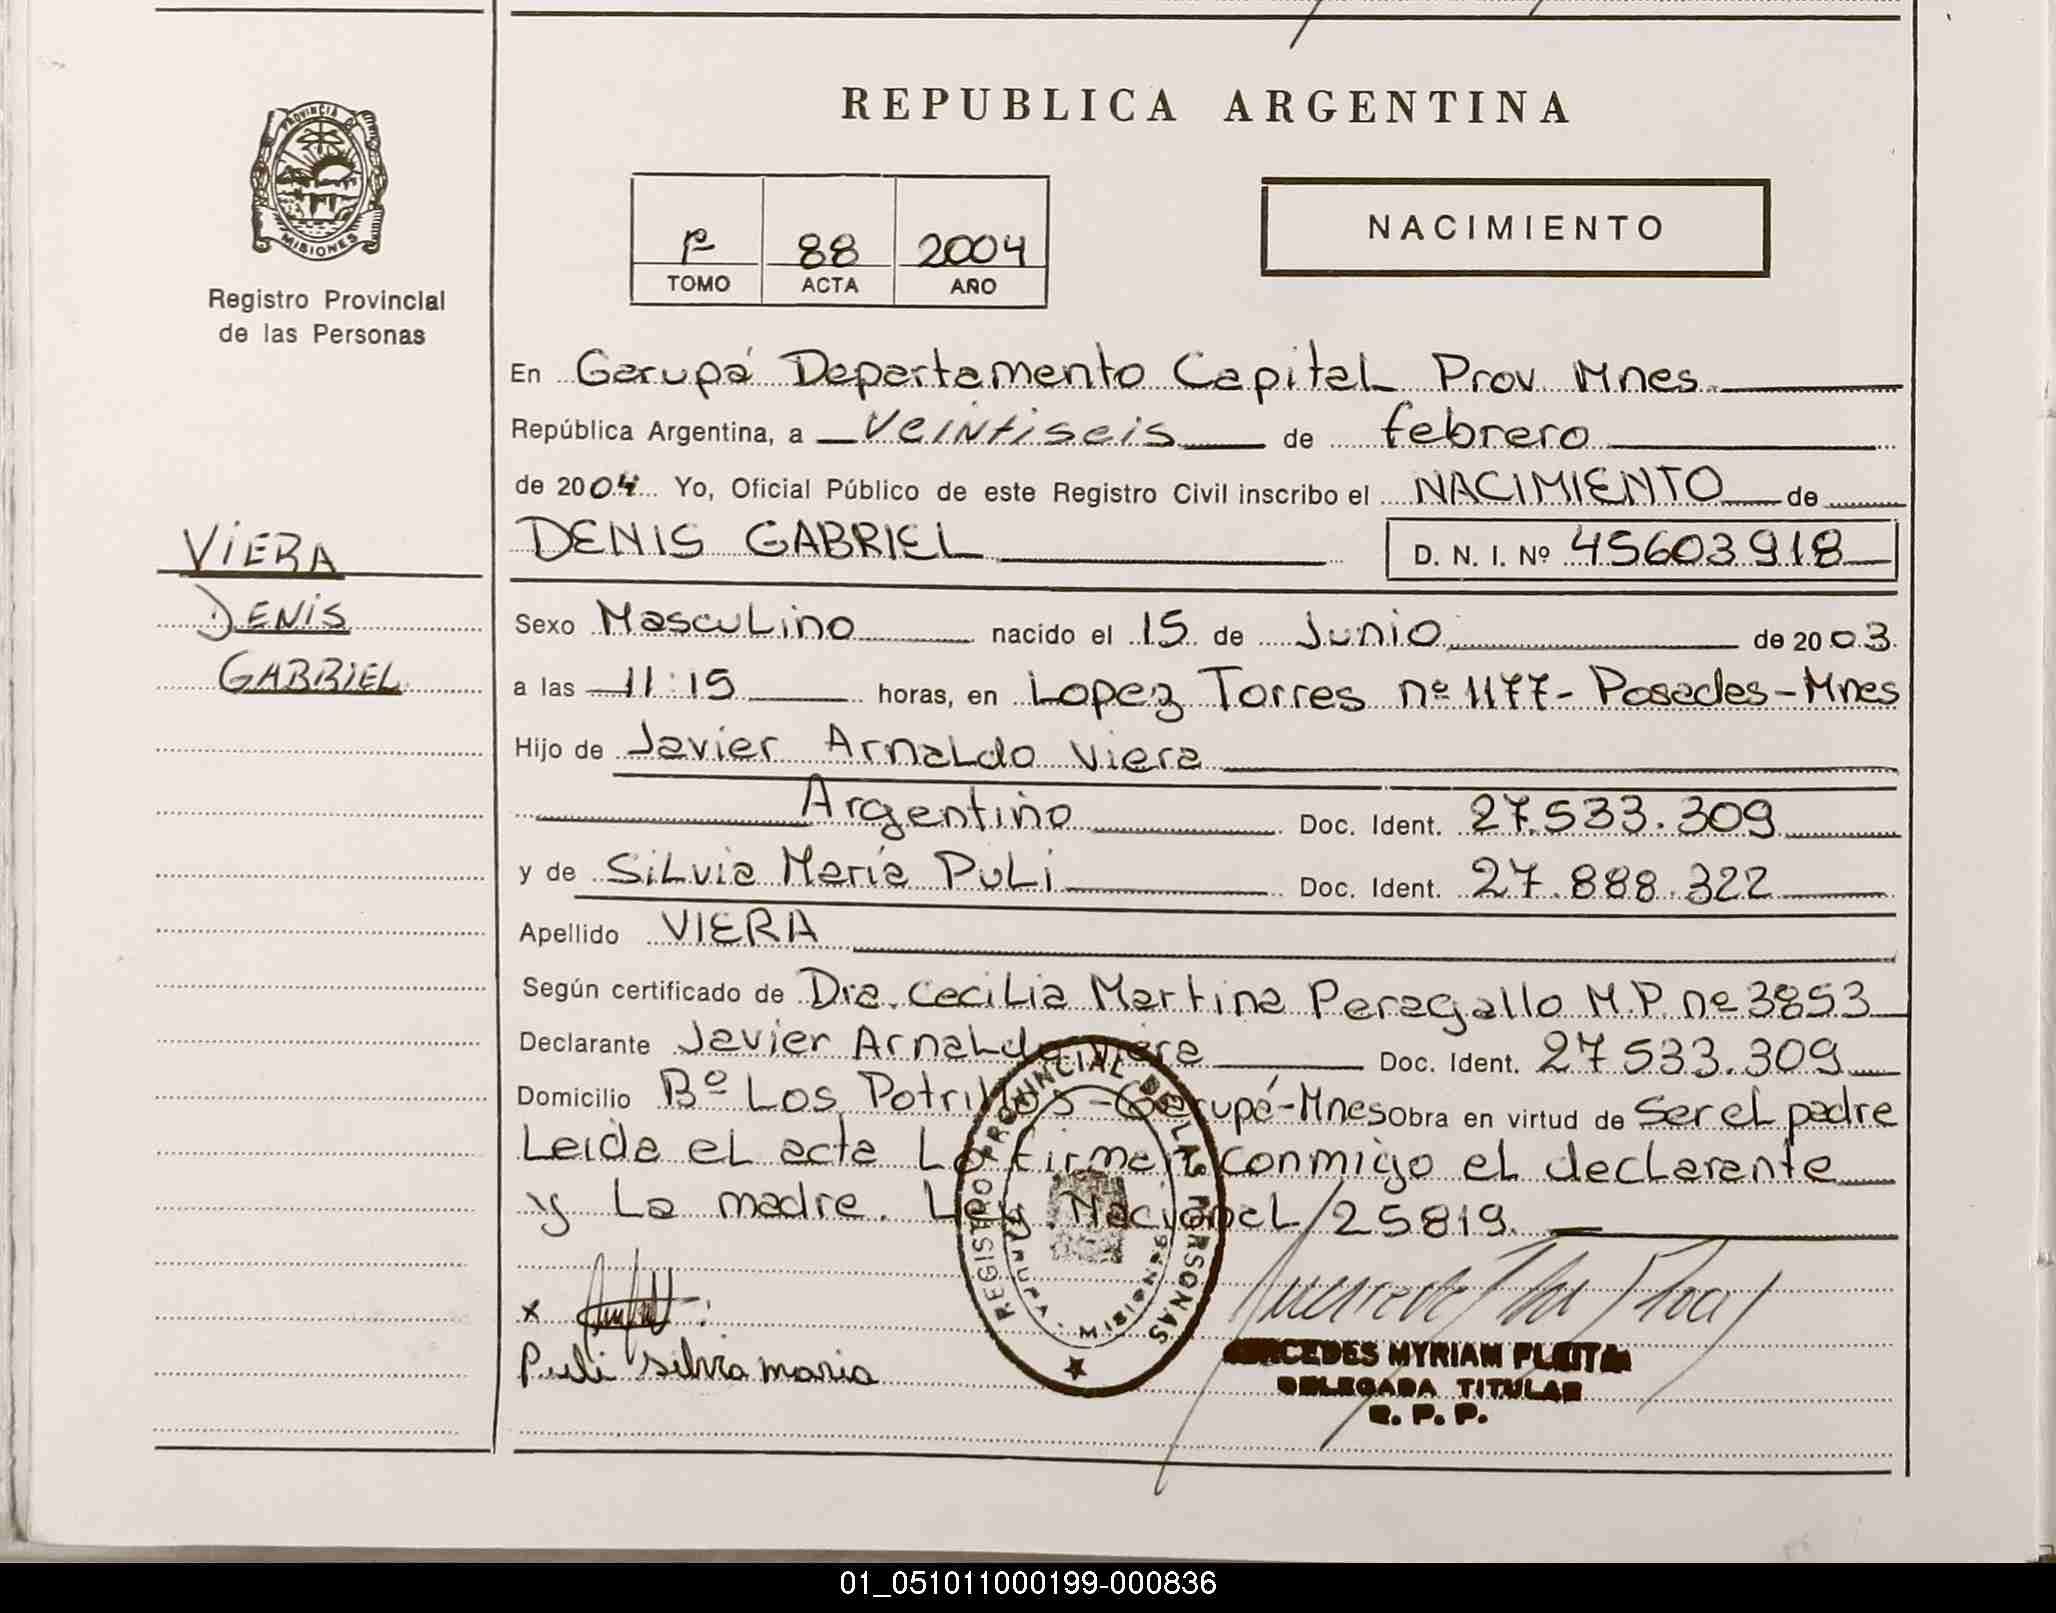 PROVINCIA DE
MISIONES
Registro Provincial
de las Personas
VIERA
DENIS
GABRIEL
REPUBLICA ARGENTINA
88 2004
TOMO ACTA AÑO
NACIMIENTO
En Garupá Departamento Capital Prov. Mnes.
República Argentina, a Veintiseis de febrero
de 2004 Yo, Oficial Público de este Registro Civil inscribo el NACIMIENTO de
DENIS GABRIEL D. N. I. Nº 45603918
Sexo Masculino nacido el 15 de Junio de 2003
a las 11:15 horas, en Lopez Torres nº 1177- Posadas-Mnes
Hijo de Javier Arnaldo Viera
Argentino Doc. Ident. 27.533.309
y de Silvia María Puli Doc. Ident. 27.888.322
Apellido VIERA
Según certificado de Dra. Cecilia Martina Peragallo M.P. nº 3853
Declarante Javier Arnaldo Viera Doc. Ident. 27533.309
Domicilio Bº Los Potrillos-Garupá-Mnes Obra en virtud de Ser el padre
Leida el acta La firman conmigo el declarante
y La madre. Ley Nacional 25819.
REGISTRO PROVINCIAL DE LAS PERSONAS
MISIONES
x
Puli silvia maria
MERCEDES MYRIAM
DELEGADA TITULAR
R. P. P.
01_051011000199-000836